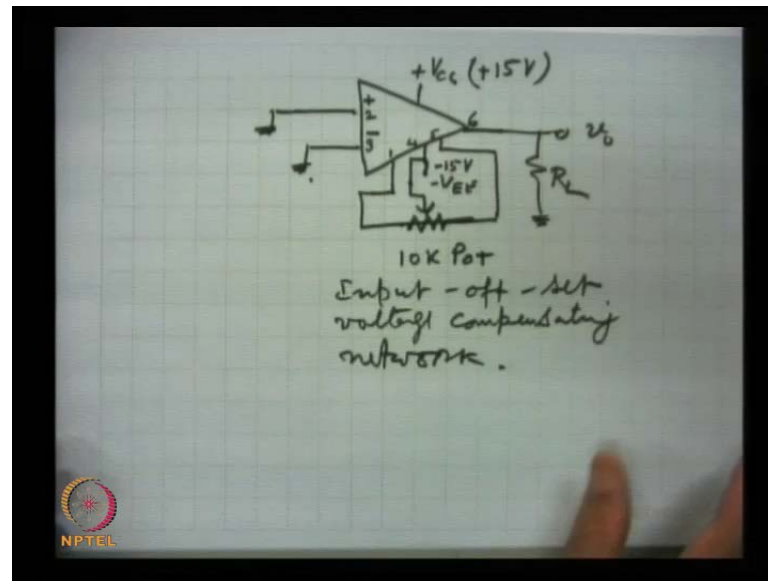 +Vcc (+15V)
+
2
-
3
1
4
5
6
-15V
-VEE
vo
RL
10K Pot
Input-off-set
voltage compensating
network.
NPTEL